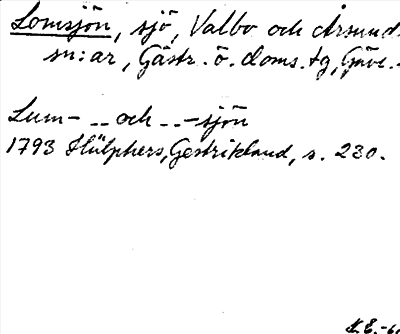 Lomsjön, sjö, Valbo och Årsund
sn:ar, Gästr. ö. doms.tg, Gävl.
Lum- -- och -- -sjön
1793 Hülphers, Gestrikland, s. 230.
K.E. -6